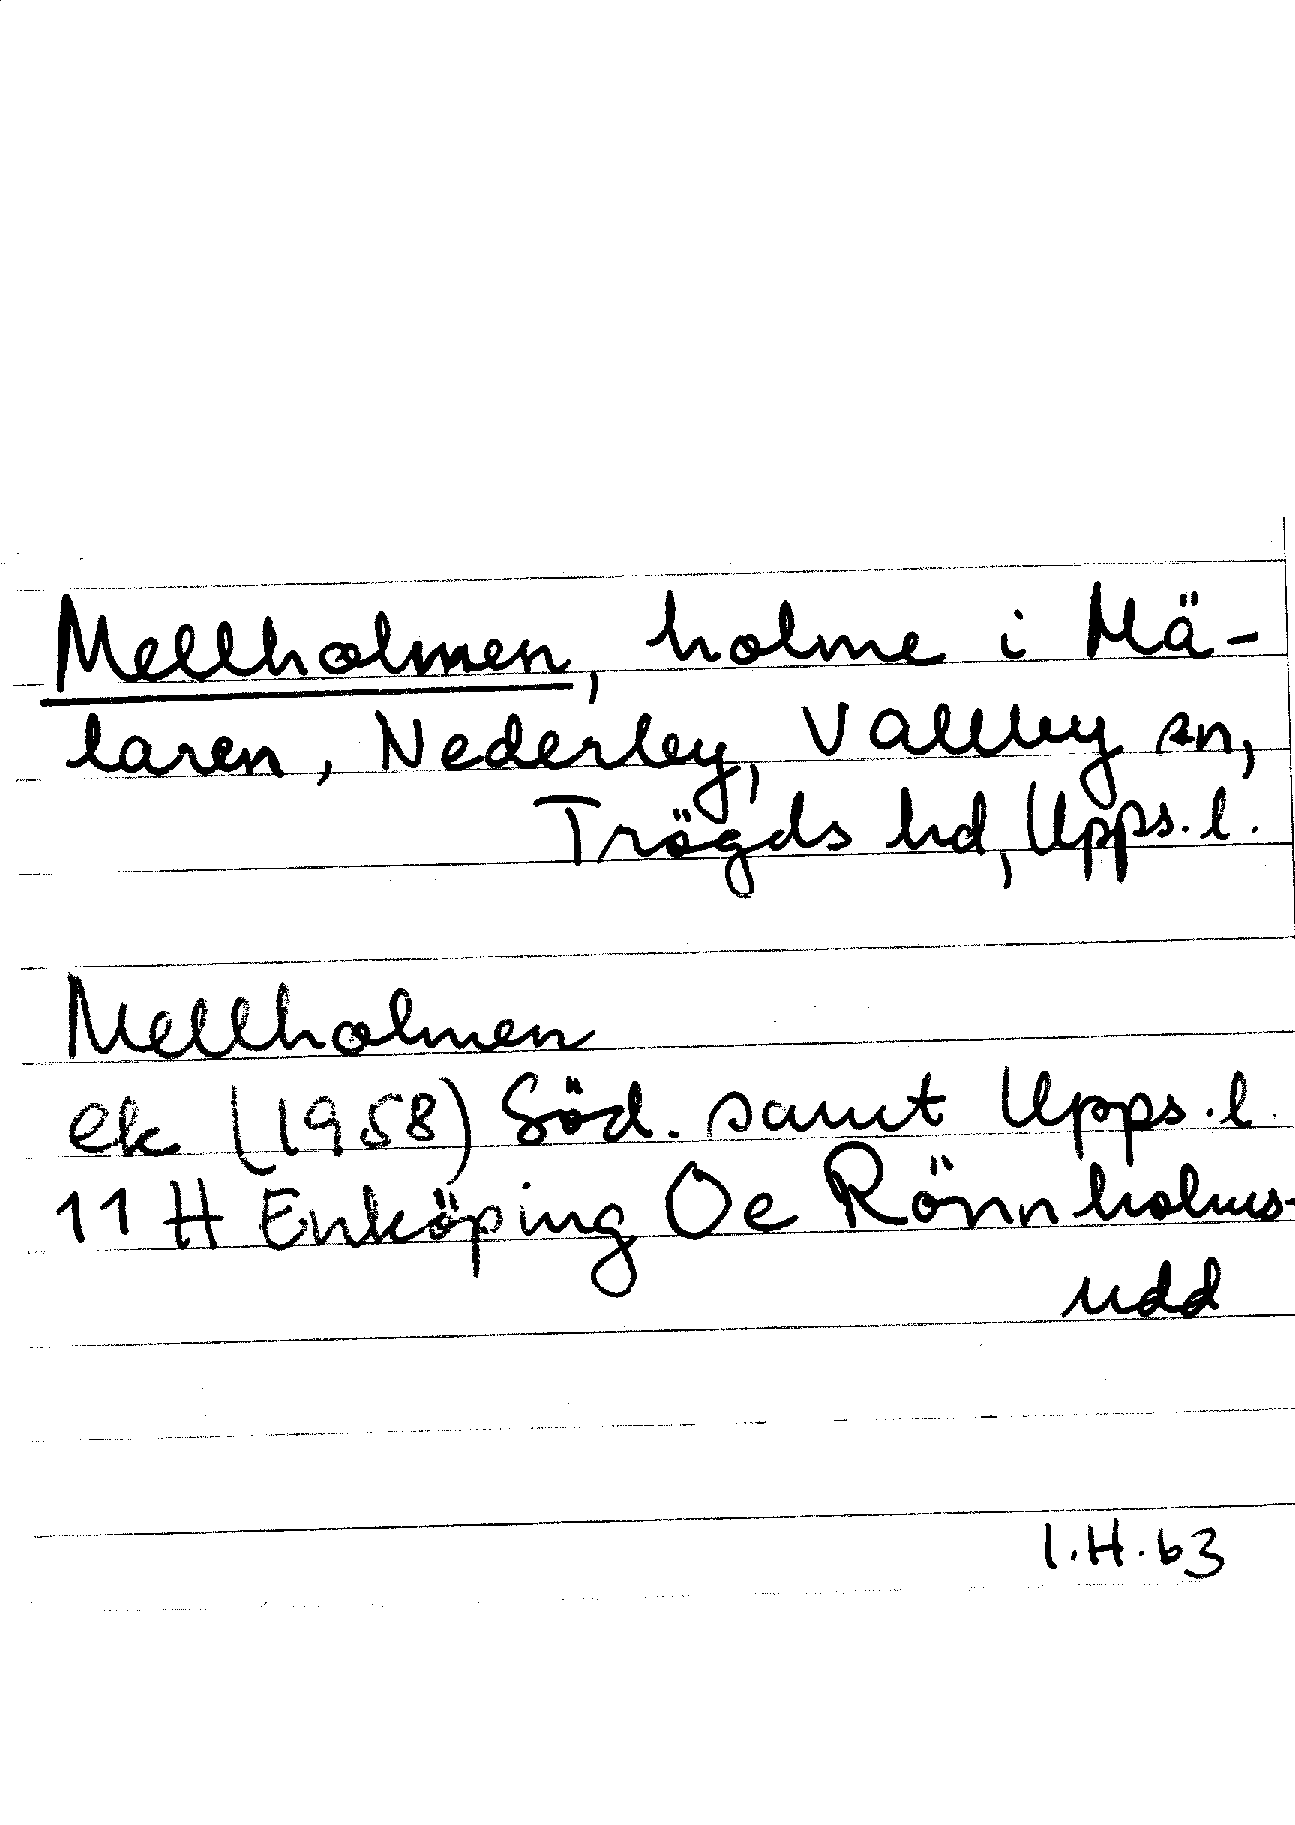 Mellholmen, holme i Mä-
laren, Nederby, Vallby sn,
Trögds hd, Upps. l.
Mellholmen
ek (1958) Söd. samt Upps. l.
11 H Enköping Oe Rönnholms-
udd
I.H.63